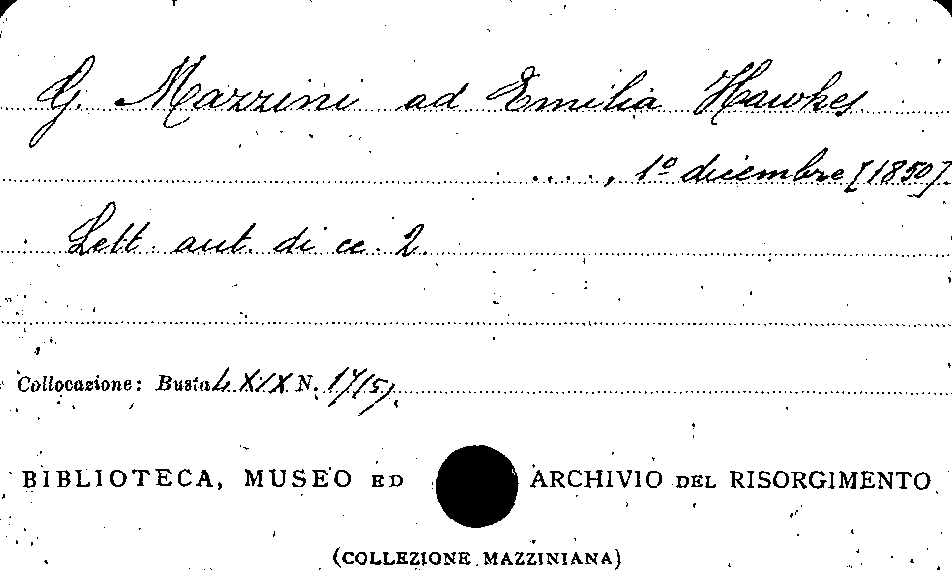 G. Mazzini ad Emilia Hawkes
...., 1º dicembre [1850].
Lett. aut. di cc. 2.
Collocazione: Busta LXIX N. 17(5).
BIBLIOTECA, MUSEO ED ARCHIVIO DEL RISORGIMENTO
(COLLEZIONE MAZZINIANA)